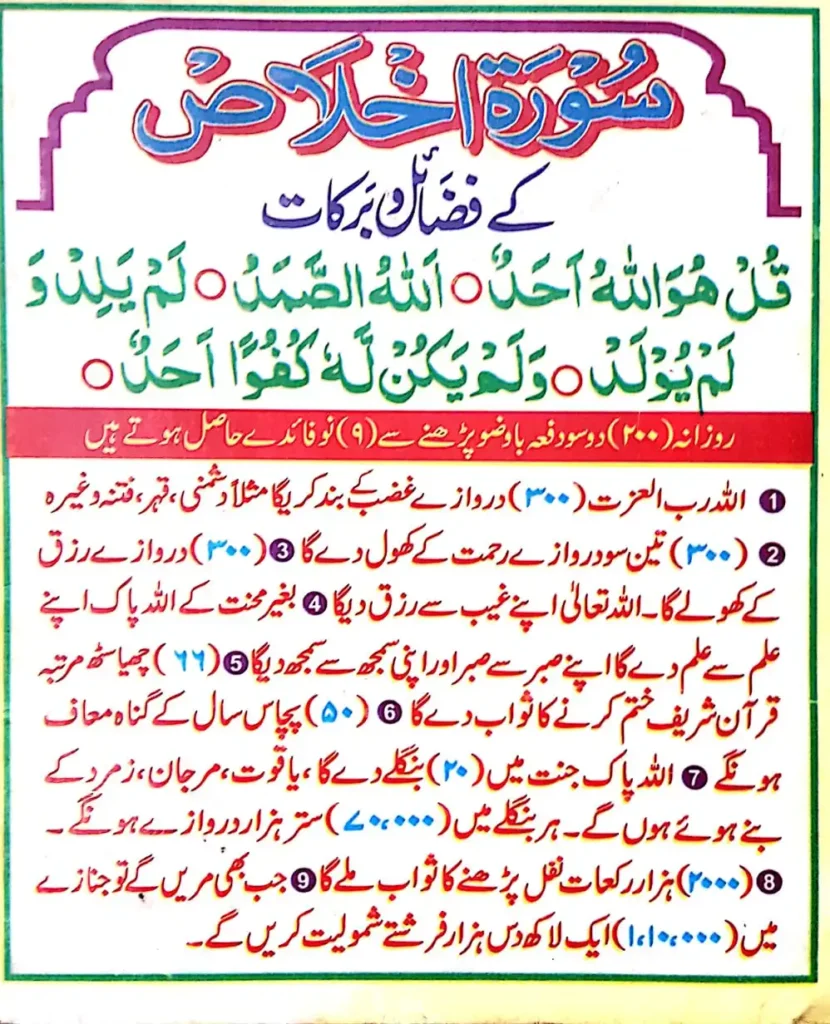 سُوْرَۃ اخْلَاص
کے فضائل و برکات
قُلْ هُوَ اللّٰهُ اَحَدٌ ○ اَللّٰهُ الصَّمَدُ ○ لَمْ يَلِدْ وَ
لَمْ يُوْلَدْ ○ وَلَمْ يَكُنْ لَّهٗ كُفُوًا اَحَدٌ ○
روزانہ (۲۰۰) دو سو دفعہ باوضو پڑھنے سے (۹) نو فائدے حاصل ہوتے ہیں
1 اللہ رب العزت (۳۰۰) دروازے غضب کے بند کریگا مثلاً دشمنی، قہر، فتنہ وغیرہ
2 (۳۰۰) تین سو دروازے رحمت کے کھول دے گا 3 (۳۰۰) دروازے رزق
کے کھولے گا۔ اللہ تعالیٰ اپنے غیب سے رزق دیگا 4 بغیر محنت کے اللہ پاک اپنے
علم سے علم دے گا اپنے صبر سے صبر اور اپنی سمجھ سے سمجھ دیگا 5 (۶۶) چھیاسٹھ مرتبہ
قرآن شریف ختم کرنے کا ثواب دے گا 6 (۵۰) پچاس سال کے گناہ معاف
ہونگے 7 اللہ پاک جنت میں (۲۰) بنگلے دے گا، یاقوت، مرجان، زمرد کے
بنے ہوئے ہوں گے۔ ہر بنگلے میں (۷۰،۰۰۰) ستر ہزار دروازے ہونگے۔
8 (۲۰۰۰) ہزار رکعات نفل پڑھنے کا ثواب ملے گا 9 جب بھی مریں گے تو جنازے
میں (۱،۱۰،۰۰۰) ایک لاکھ دس ہزار فرشتے شمولیت کریں گے۔